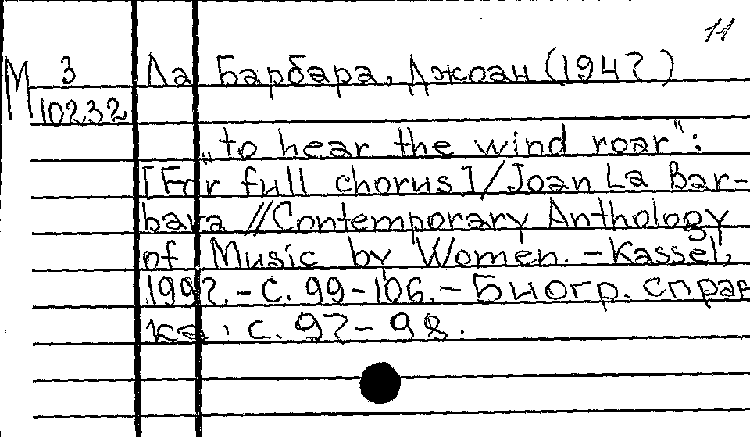 11
М 3 Ла Барбара, Джоан (1947)
10232
„to hear the wind roar“:
[For full chorus] / Joan La Bar-
bara // Contemporary Anthology
of Music by Women. – Kassel,
1997. – С. 99-106. – Биогр. справ
ка: с. 97-98.